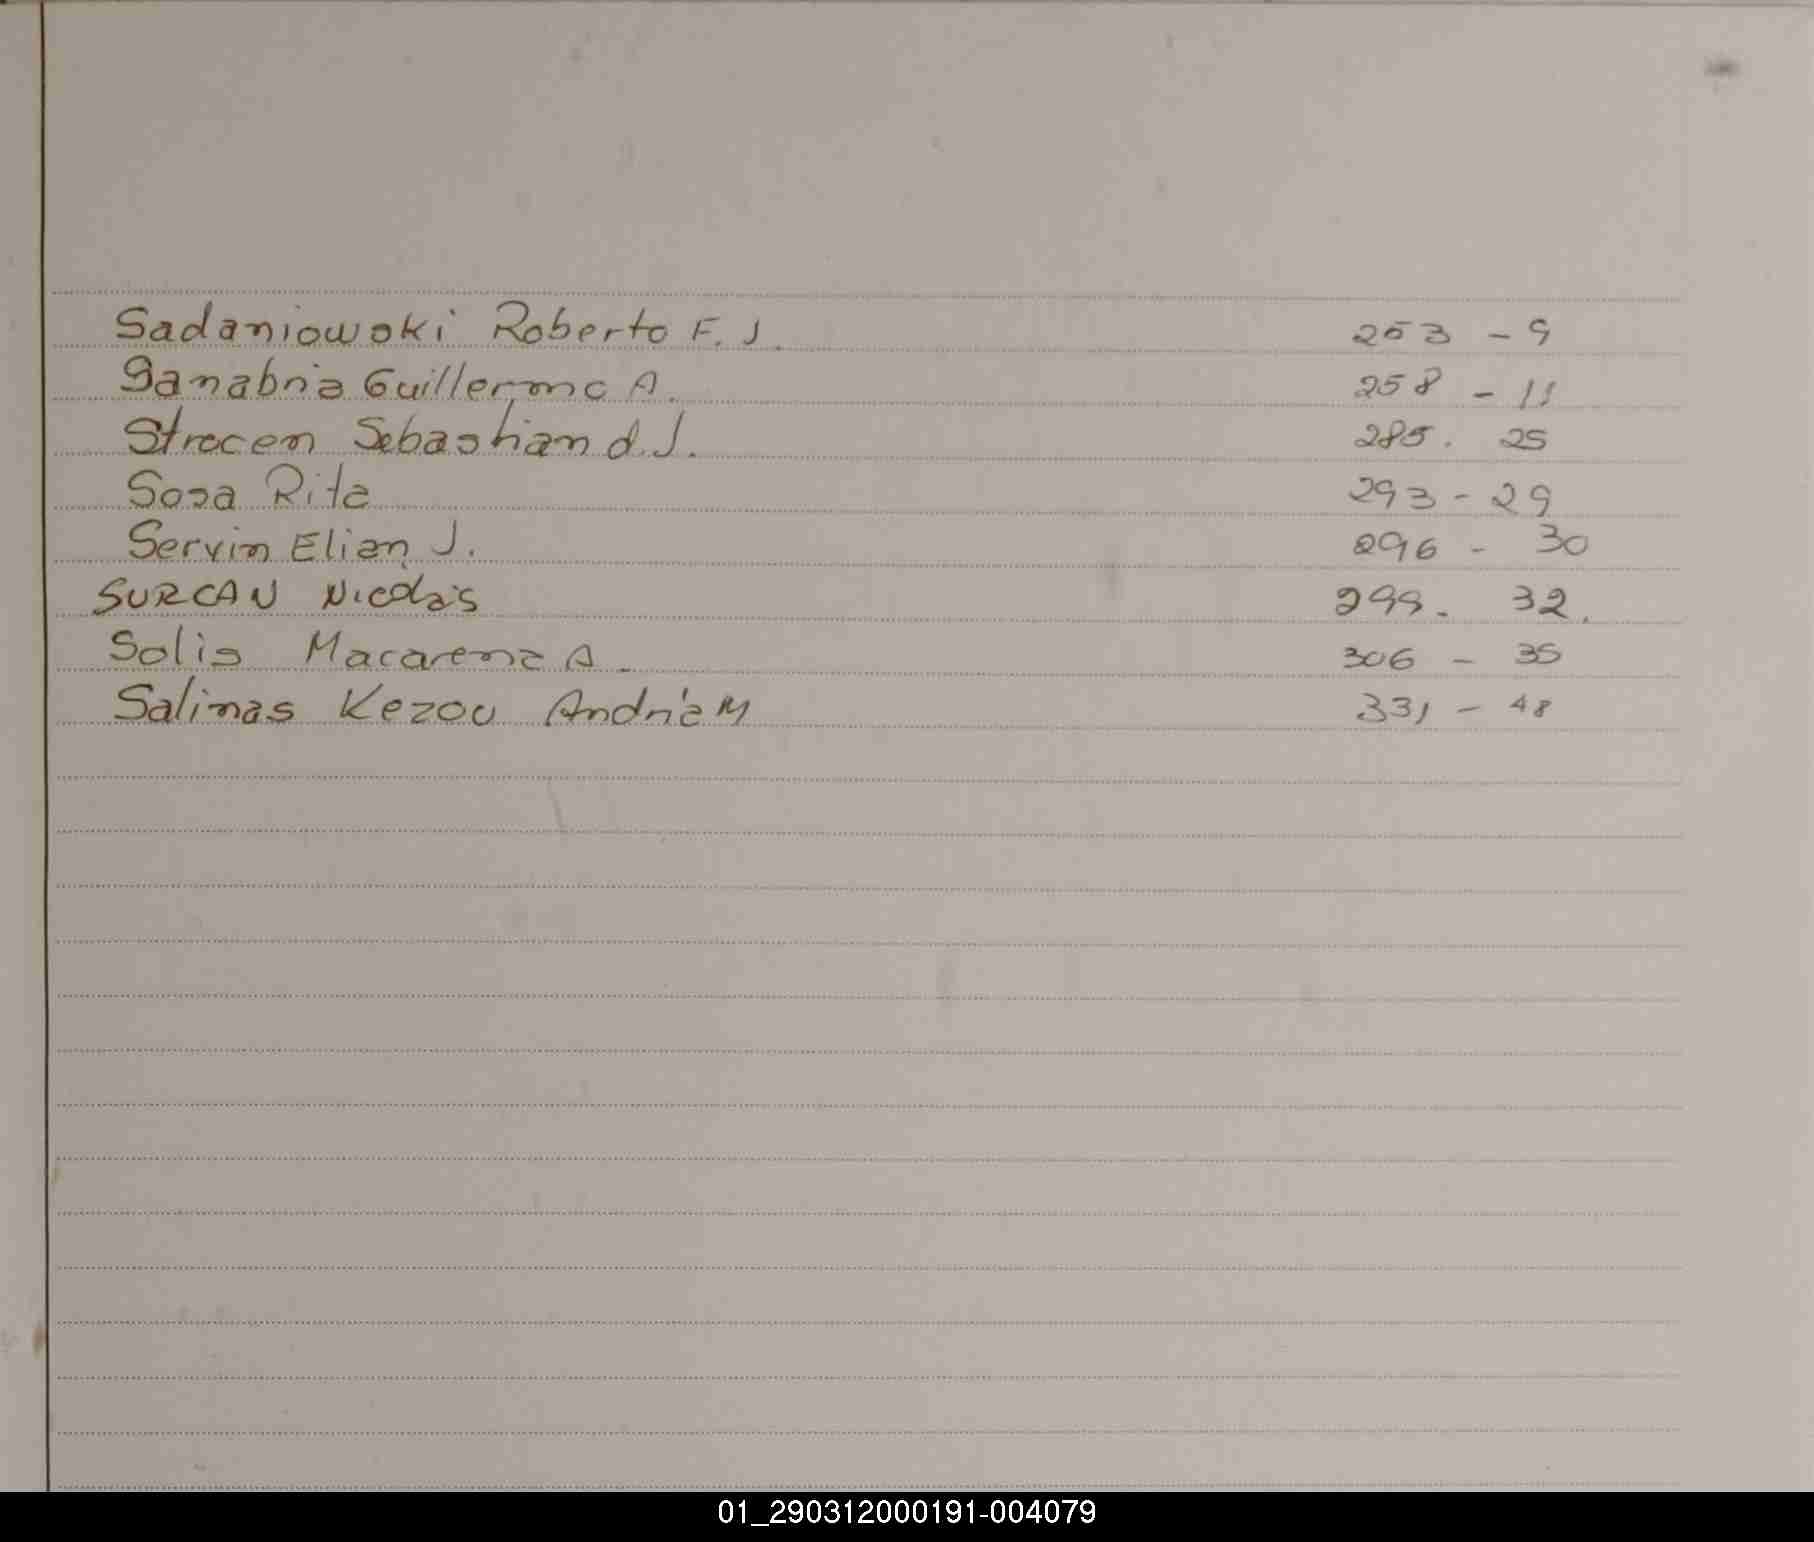 Sadaniowski Roberto F. J. 253 - 9
Sanabria Guillermo A. 258 - 11
Strocen Sebastian d. J. 285. 25
Sosa Rita 293 - 29
Servin Elian J. 296 - 30
SURCAN Nicolás 299. 32.
Solis Macarena A. 306 - 35
Salinas Kezou Andria M 331 - 48
01_290312000191-004079